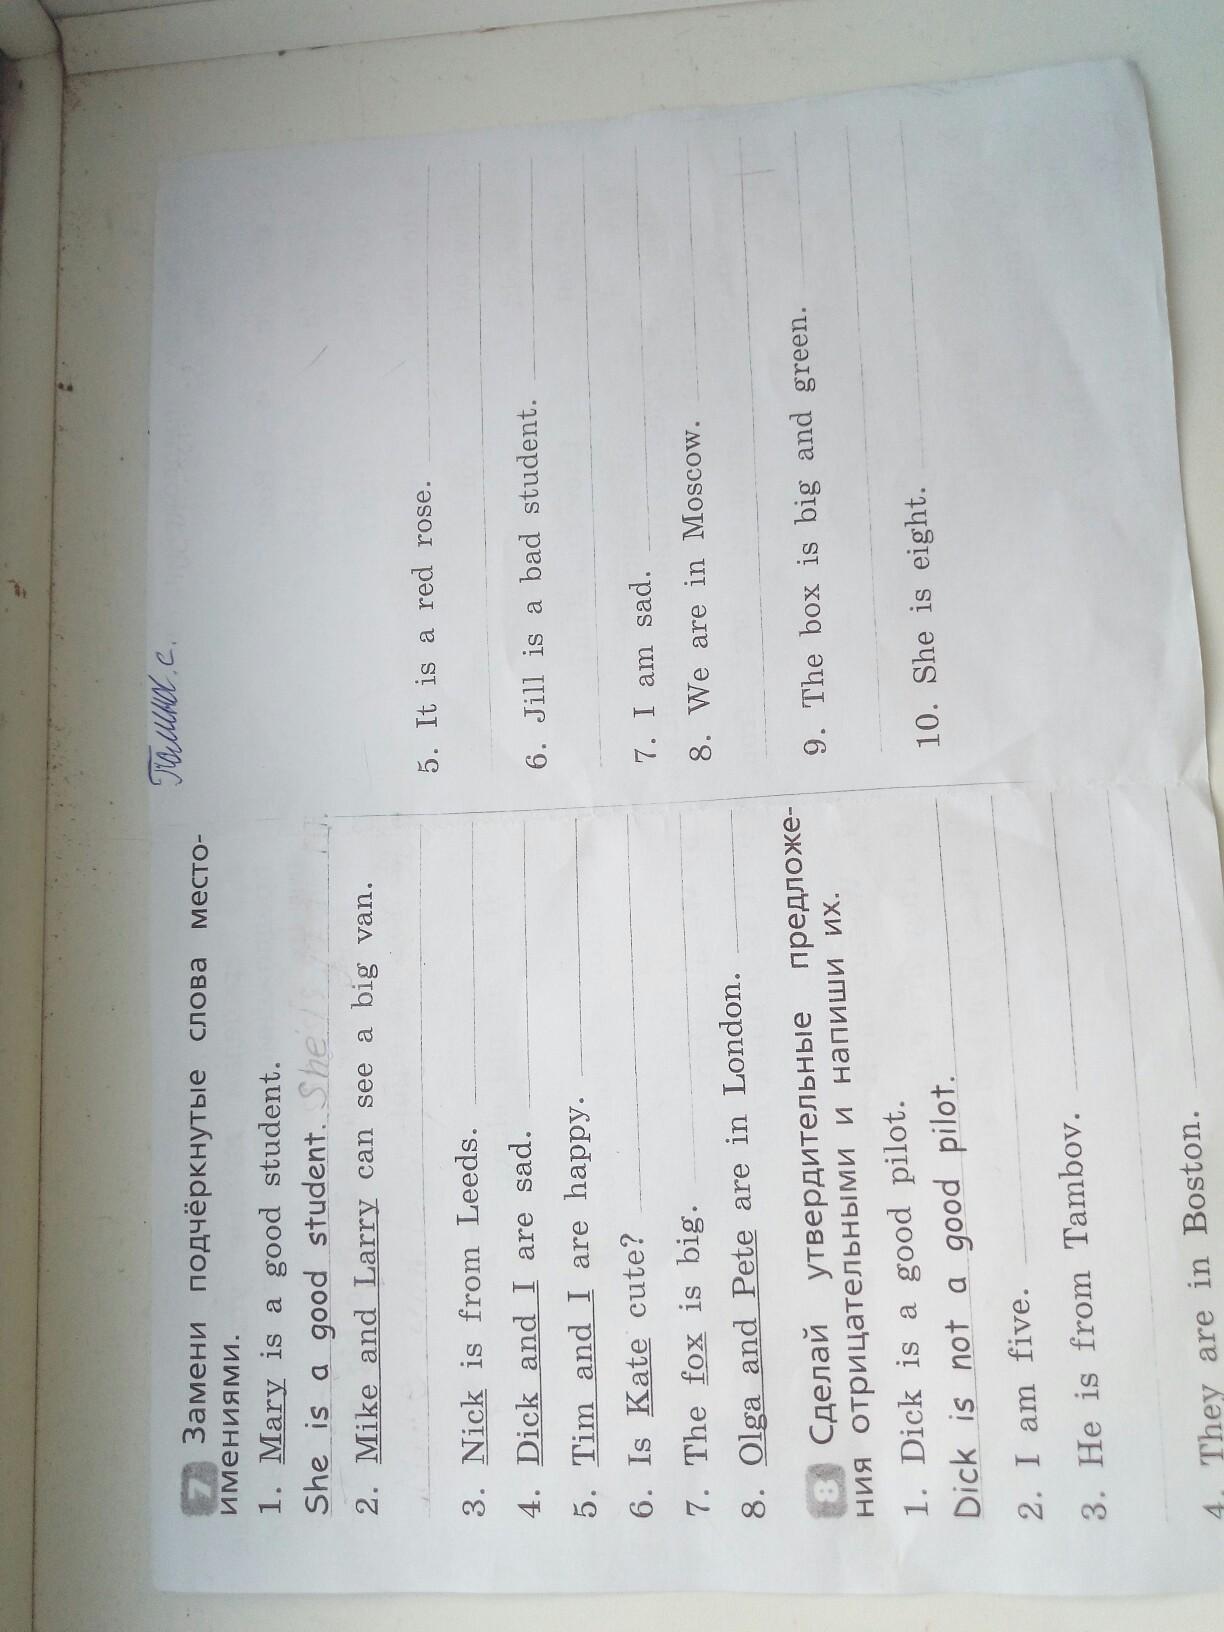 7 Замени подчёркнутые слова место-
имениями.
1. Mary is a good student.
She is a good student. She is
2. Mike and Larry can see a big van.
3. Nick is from Leeds.
4. Dick and I are sad.
5. Tim and I are happy.
6. Is Kate cute?
7. The fox is big.
8. Olga and Pete are in London.
8 Сделай утвердительные предложе-
ния отрицательными и напиши их.
1. Dick is a good pilot.
Dick is not a good pilot.
2. I am five.
3. He is from Tambov.
4. They are in Boston.
5. It is a red rose.
6. Jill is a bad student.
7. I am sad.
8. We are in Moscow.
9. The box is big and green.
10. She is eight.